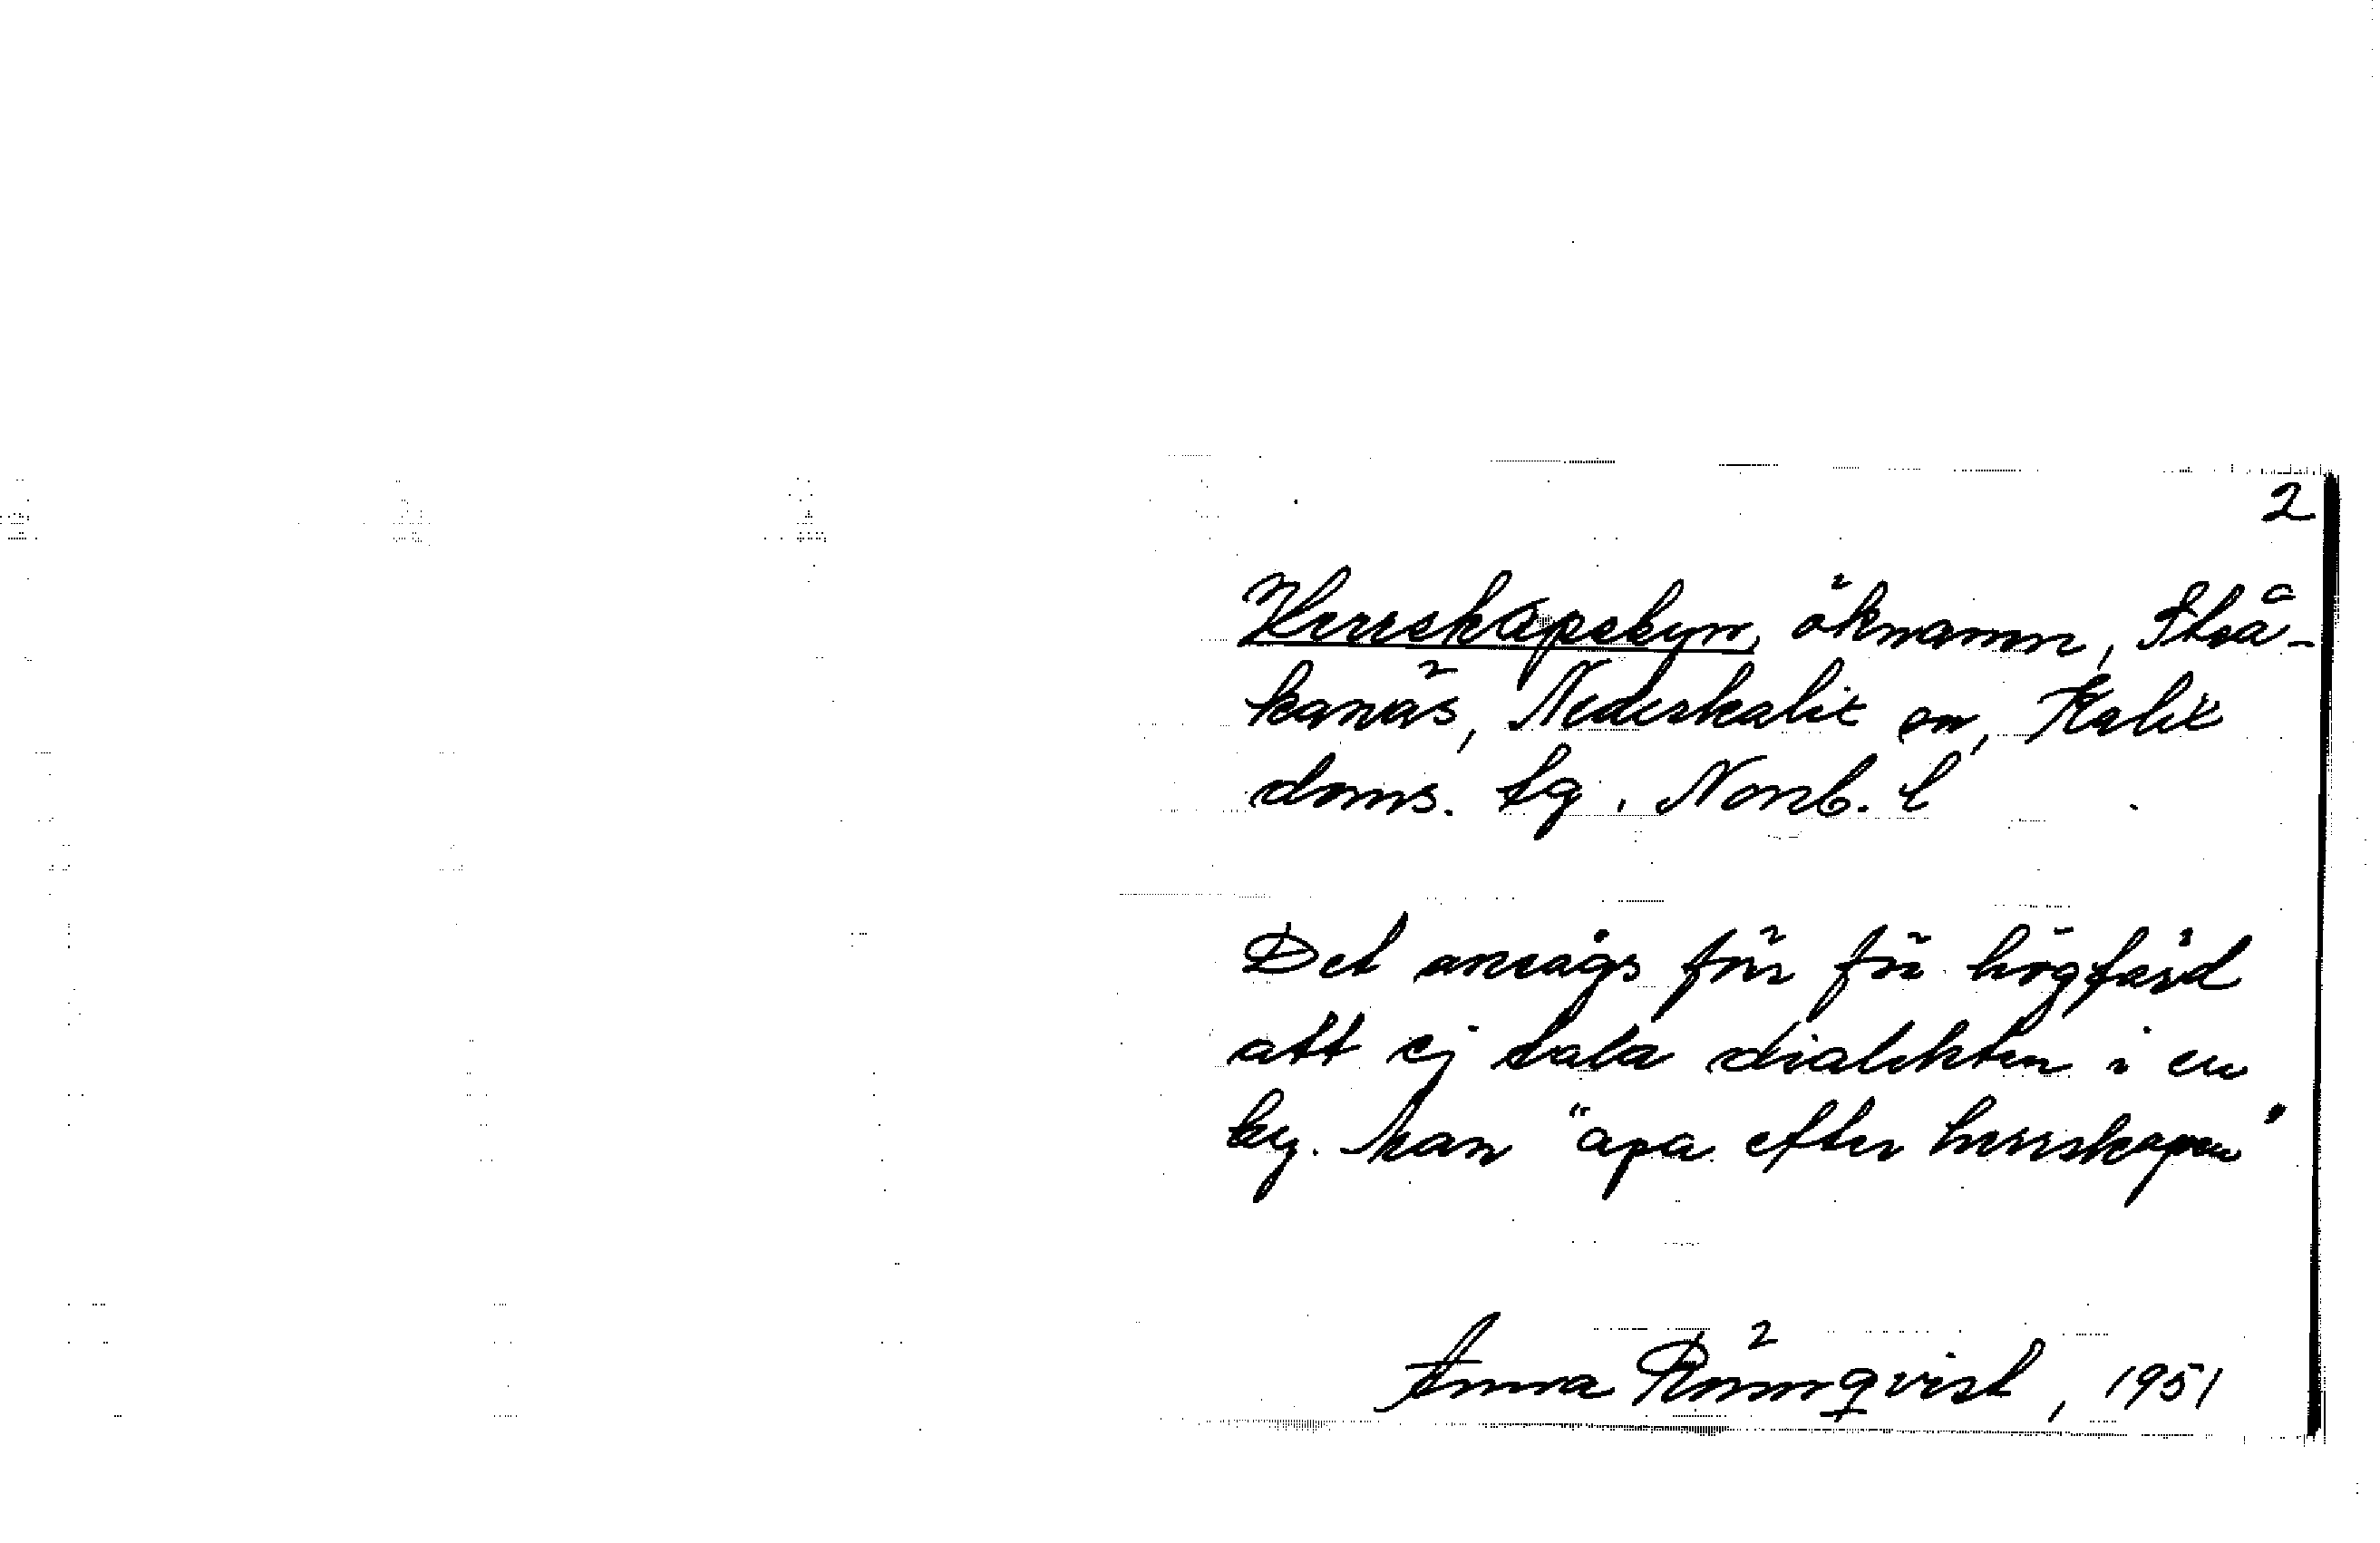 2
Herrskapsbyn, öknamn, Strå-
kanäs, Nederkalix sn, Kalix
doms. tg. Norrb. l
Det ansågs för för högfärd
att ej tala dialekten i en
by. Man "apa efter herrskapen"
Anna Römqvist, 1951